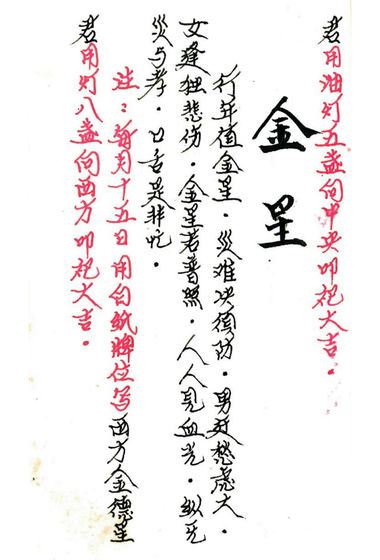 君用油灯五盏向中央叩祀大吉。
金星
行年值金星。災难决须防。男逢愁虑大。
女逢独悲伤。金星若普照。人人见血光。纵无
災与孝。口舌是非忙。
注：每月十五日用白纸牌位写西方金德星
君用灯八盏向西方叩祀大吉。